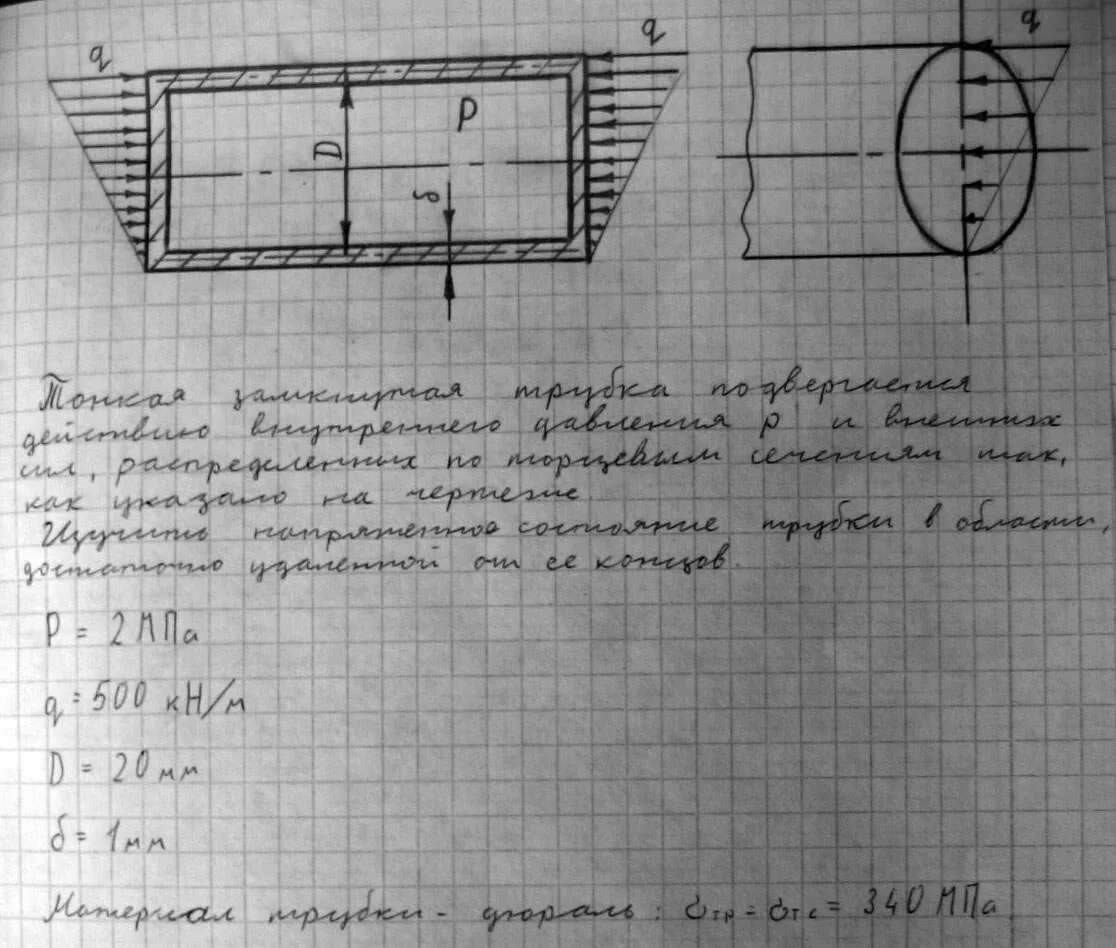 q
q
q
D
P
δ
Тонкая замкнутая трубка подвергается
действию внутреннего давления p и внешних
сил, распределенных по торцевым сечениям так,
как указано на чертеже.
Изучить напряженное состояние трубки в области,
достаточно удаленной от ее концов.
P = 2 МПа
q = 500 кН/м
D = 20 мм
δ = 1 мм
Материал трубки - дюраль: σтр = σтс = 340 МПа